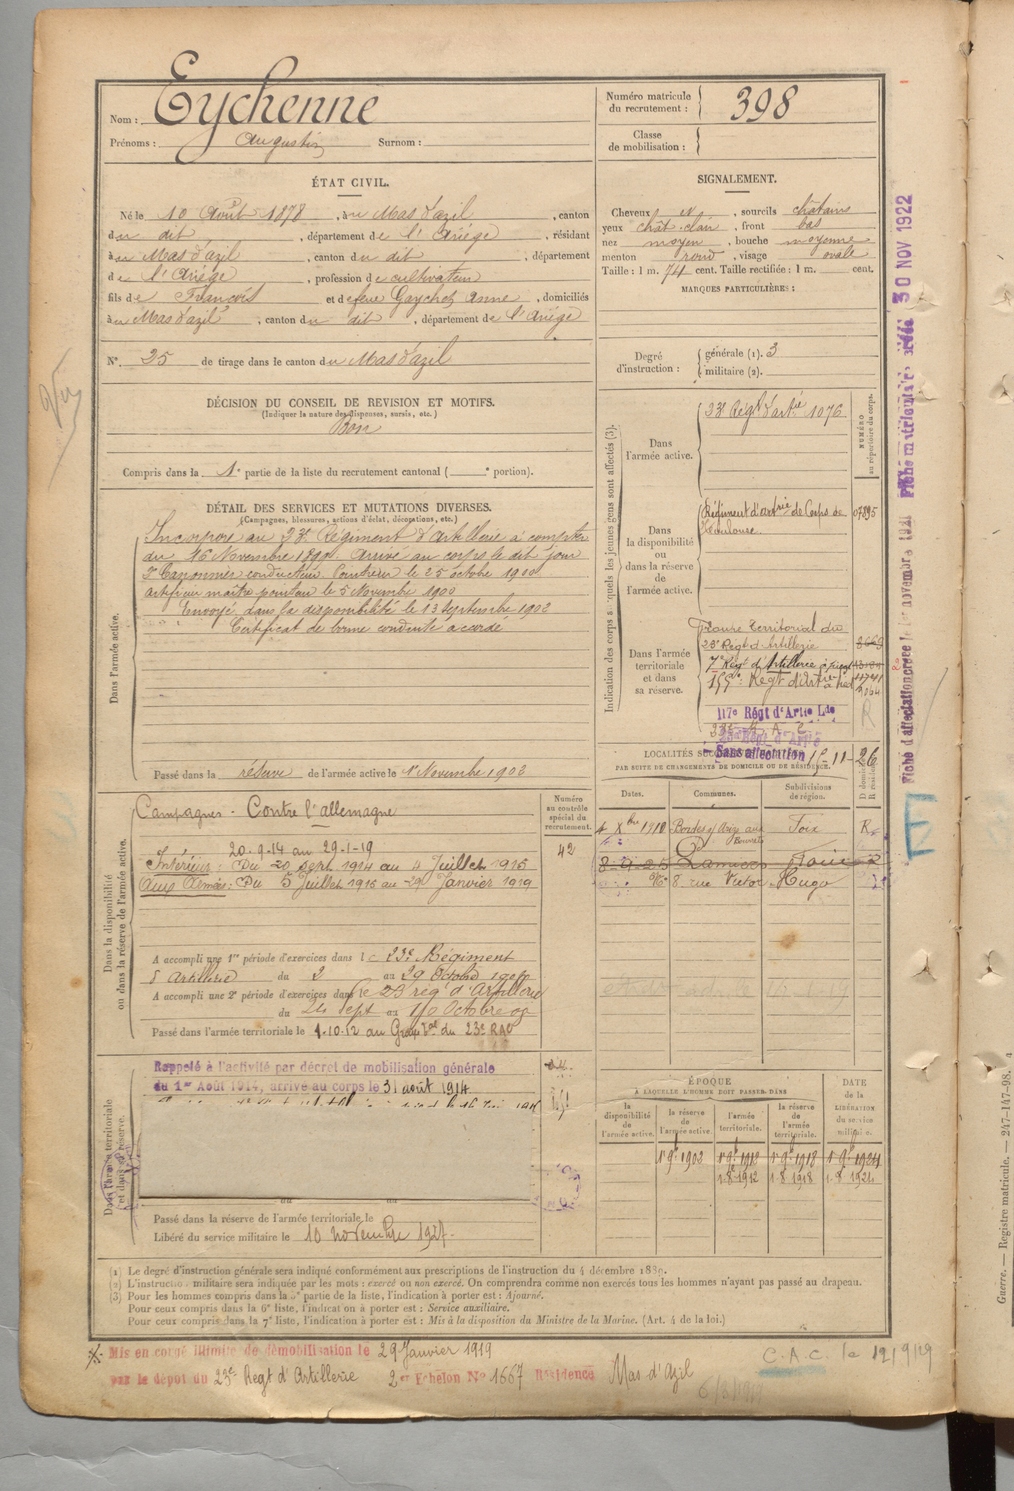 Nom : Eychenne
Prénoms : Augustin Surnom :
Numéro matricule du recrutement : 398
Classe de mobilisation :
ÉTAT CIVIL.
Né le 10 Août 1878, à u Mas d'azil, canton
du dit, département de l'Ariége, résidant
à u Mas d'azil, canton du dit, département
de l'Ariége, profession de cultivateur
fils de François et de feue Gaychet Anne, domiciliés
à u Mas d'azil, canton du dit, département de l'Ariége
N° 25 de tirage dans le canton du Mas d'azil
SIGNALEMENT.
Cheveux , sourcils châtains
yeux chât. clair, front bas
nez moyen, bouche moyenne
menton rond, visage ovale
Taille : 1 m. 74 cent. Taille rectifiée : 1 m. cent.
MARQUES PARTICULIÈRES :
Degré d'instruction : générale (1). 3
militaire (2).
DÉCISION DU CONSEIL DE REVISION ET MOTIFS.
(Indiquer la nature des dispenses, sursis, etc.)
Bon
Compris dans la 1e partie de la liste du recrutement cantonal ( e portion).
DÉTAIL DES SERVICES ET MUTATIONS DIVERSES.
(Campagnes, blessures, actions d'éclat, décorations, etc.)
Dans l'armée active.
Incorporé au 23e Régiment d'artillerie à compter
du 16 Novembre 1899. Arrivé au corps le dit jour
2e Canonnier conducteur. Pointeur le 25 octobre 1900
artificier maître pointeur le 5 Novembre 1900
Envoyé dans la disponibilité le 13 Septembre 1902
Certificat de bonne conduite accordé
Passé dans la réserve de l'armée active le 1er Novembre 1902
Indication des corps auxquels les jeunes gens sont affectés (3).
NUMÉRO au répertoire du corps.
Dans l'armée active.
23e Régt d'artie 1076
Dans la disponibilité ou dans la réserve de l'armée active.
Régiment d'artrie de Corps de
Toulouse.
Dans l'armée territoriale et dans sa réserve.
Groupe Territorial du
23e Régt d'Artillerie
7e Régt d'Artillerie à pied
117e Régt d'Artie Lde
Sans affectation 15-11-26
LOCALITÉS SUCCESSIVES
PAR SUITE DE CHANGEMENTS DE DOMICILE OU DE RÉSIDENCE.
Dates. Communes. Subdivisions de région. D domicile R résidence
4 Xbre 1910 Foix R
8 rue Victor Hugo
Dans la disponibilité ou dans la réserve de l'armée active.
Numéro au contrôle spécial du recrutement.
42
Campagnes - Contre l'allemagne
20-9-14 au 29-1-19
Intérieur : Du 20 sept 1914 au 4 Juillet 1915
Aux Armées : Du 5 Juillet 1915 au 29 Janvier 1919
A accompli une 1re période d'exercices dans le 23e Régiment
d'Artillerie du 2 au 29 Octobre
A accompli une 2e période d'exercices dans le 23 rég d'Artillerie
du 24 sept au 10 Octobre 09
Passé dans l'armée territoriale le 1.10.12 au Groupe Tal du 23e RAC
Dans l'armée territoriale et dans sa réserve.
Rappelé à l'activité par décret de mobilisation générale
du 1er Août 1914, arrivé au corps le 31 août 1914
Passé dans la réserve de l'armée territoriale le
Libéré du service militaire le 10 novembre 1927.
ÉPOQUE
A LAQUELLE L'HOMME DOIT PASSER DANS
DATE de la LIBÉRATION du service militaire.
la disponibilité de l'armée active. la réserve de l'armée active. l'armée territoriale. la réserve de l'armée territoriale.
1 9e 1902 1 9e 1912 1 9e 1918 1 9e 1924
1.8 1912 1.8 1918 1.8 1924
(1) Le degré d'instruction générale sera indiqué conformément aux prescriptions de l'instruction du 4 décembre 1889.
(2) L'instruction militaire sera indiquée par les mots : exercé ou non exercé. On comprendra comme non exercés tous les hommes n'ayant pas passé au drapeau.
(3) Pour les hommes compris dans la 5e partie de la liste, l'indication à porter est : Ajourné.
Pour ceux compris dans la 6e liste, l'indication à porter est : Service auxiliaire.
Pour ceux compris dans la 7e liste, l'indication à porter est : Mis à la disposition du Ministre de la Marine. (Art. 4 de la loi.)
Mis en congé illimité de démobilisation le 29 Janvier 1919
par le dépôt du 23e Régt d'Artillerie 2e Echelon N° 1667 Résidence Mas d'Azil
C.A.C. le 12/9/29
30 NOV 1922
Guerre. — Registre matricule. — 247-147-98.